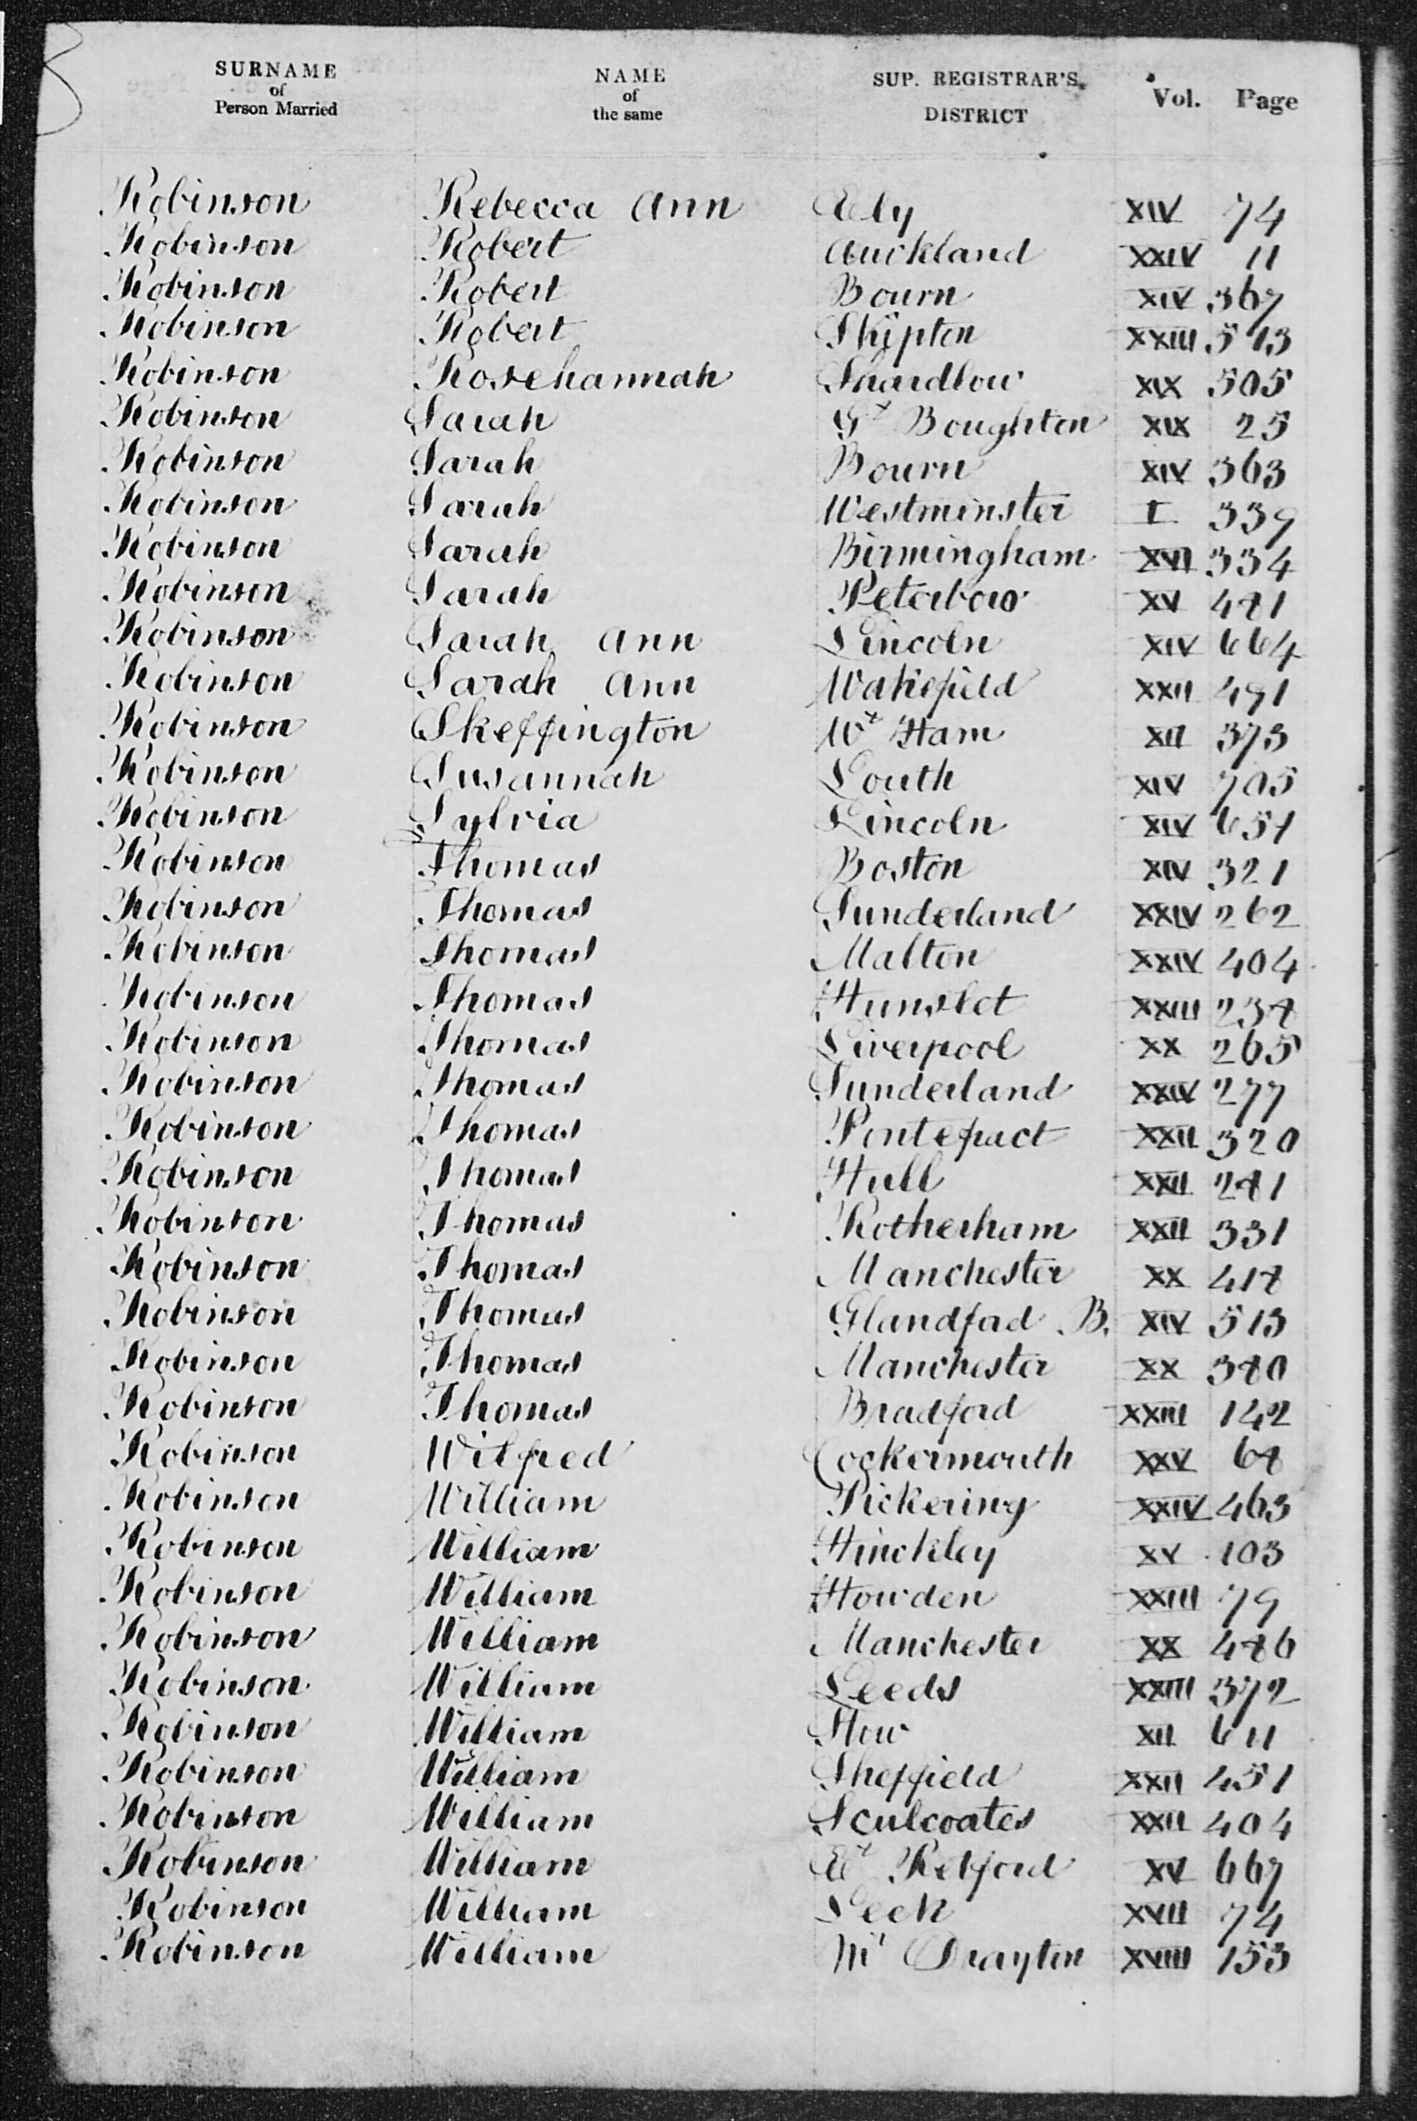 SURNAME of Person Married NAME of the same SUP. REGISTRAR'S DISTRICT Vol. Page
Robinson Rebecca Ann Ely XIV 74
Robinson Robert Auckland XXIV 11
Robinson Robert Bourn XIV 367
Robinson Robert Skipton XXIII 513
Robinson Rosehannah Shardlow XIX 505
Robinson Sarah Gt Boughton XIX 25
Robinson Sarah Bourn XIV 363
Robinson Sarah Westminster I 339
Robinson Sarah Birmingham XVI 334
Robinson Sarah Peterboro XV 481
Robinson Sarah Ann Lincoln XIV 664
Robinson Sarah Ann Wakefield XXII 491
Robinson Skeffington Wt Ham XII 373
Robinson Susannah Louth XIV 705
Robinson Sylvia Lincoln XIV 651
Robinson Thomas Boston XIV 321
Robinson Thomas Sunderland XXIV 262
Robinson Thomas Malton XXIV 404
Robinson Thomas Hunslet XXIII 238
Robinson Thomas Liverpool XX 265
Robinson Thomas Sunderland XXIV 277
Robinson Thomas Pontefract XXII 320
Robinson Thomas Hull XXII 281
Robinson Thomas Rotherham XXII 331
Robinson Thomas Manchester XX 418
Robinson Thomas Glandford B. XIV 513
Robinson Thomas Manchester XX 380
Robinson Thomas Bradford XXIII 142
Robinson Wilfred Cockermouth XXV 68
Robinson William Pickering XXIV 463
Robinson William Hinckley XV 103
Robinson William Howden XXIII 79
Robinson William Manchester XX 486
Robinson William Leeds XXIII 372
Robinson William Stow XII 611
Robinson William Sheffield XXII 451
Robinson William Sculcoates XXII 404
Robinson William Et Retford XV 667
Robinson William Leek XVII 74
Robinson William Mt Drayton XVIII 153